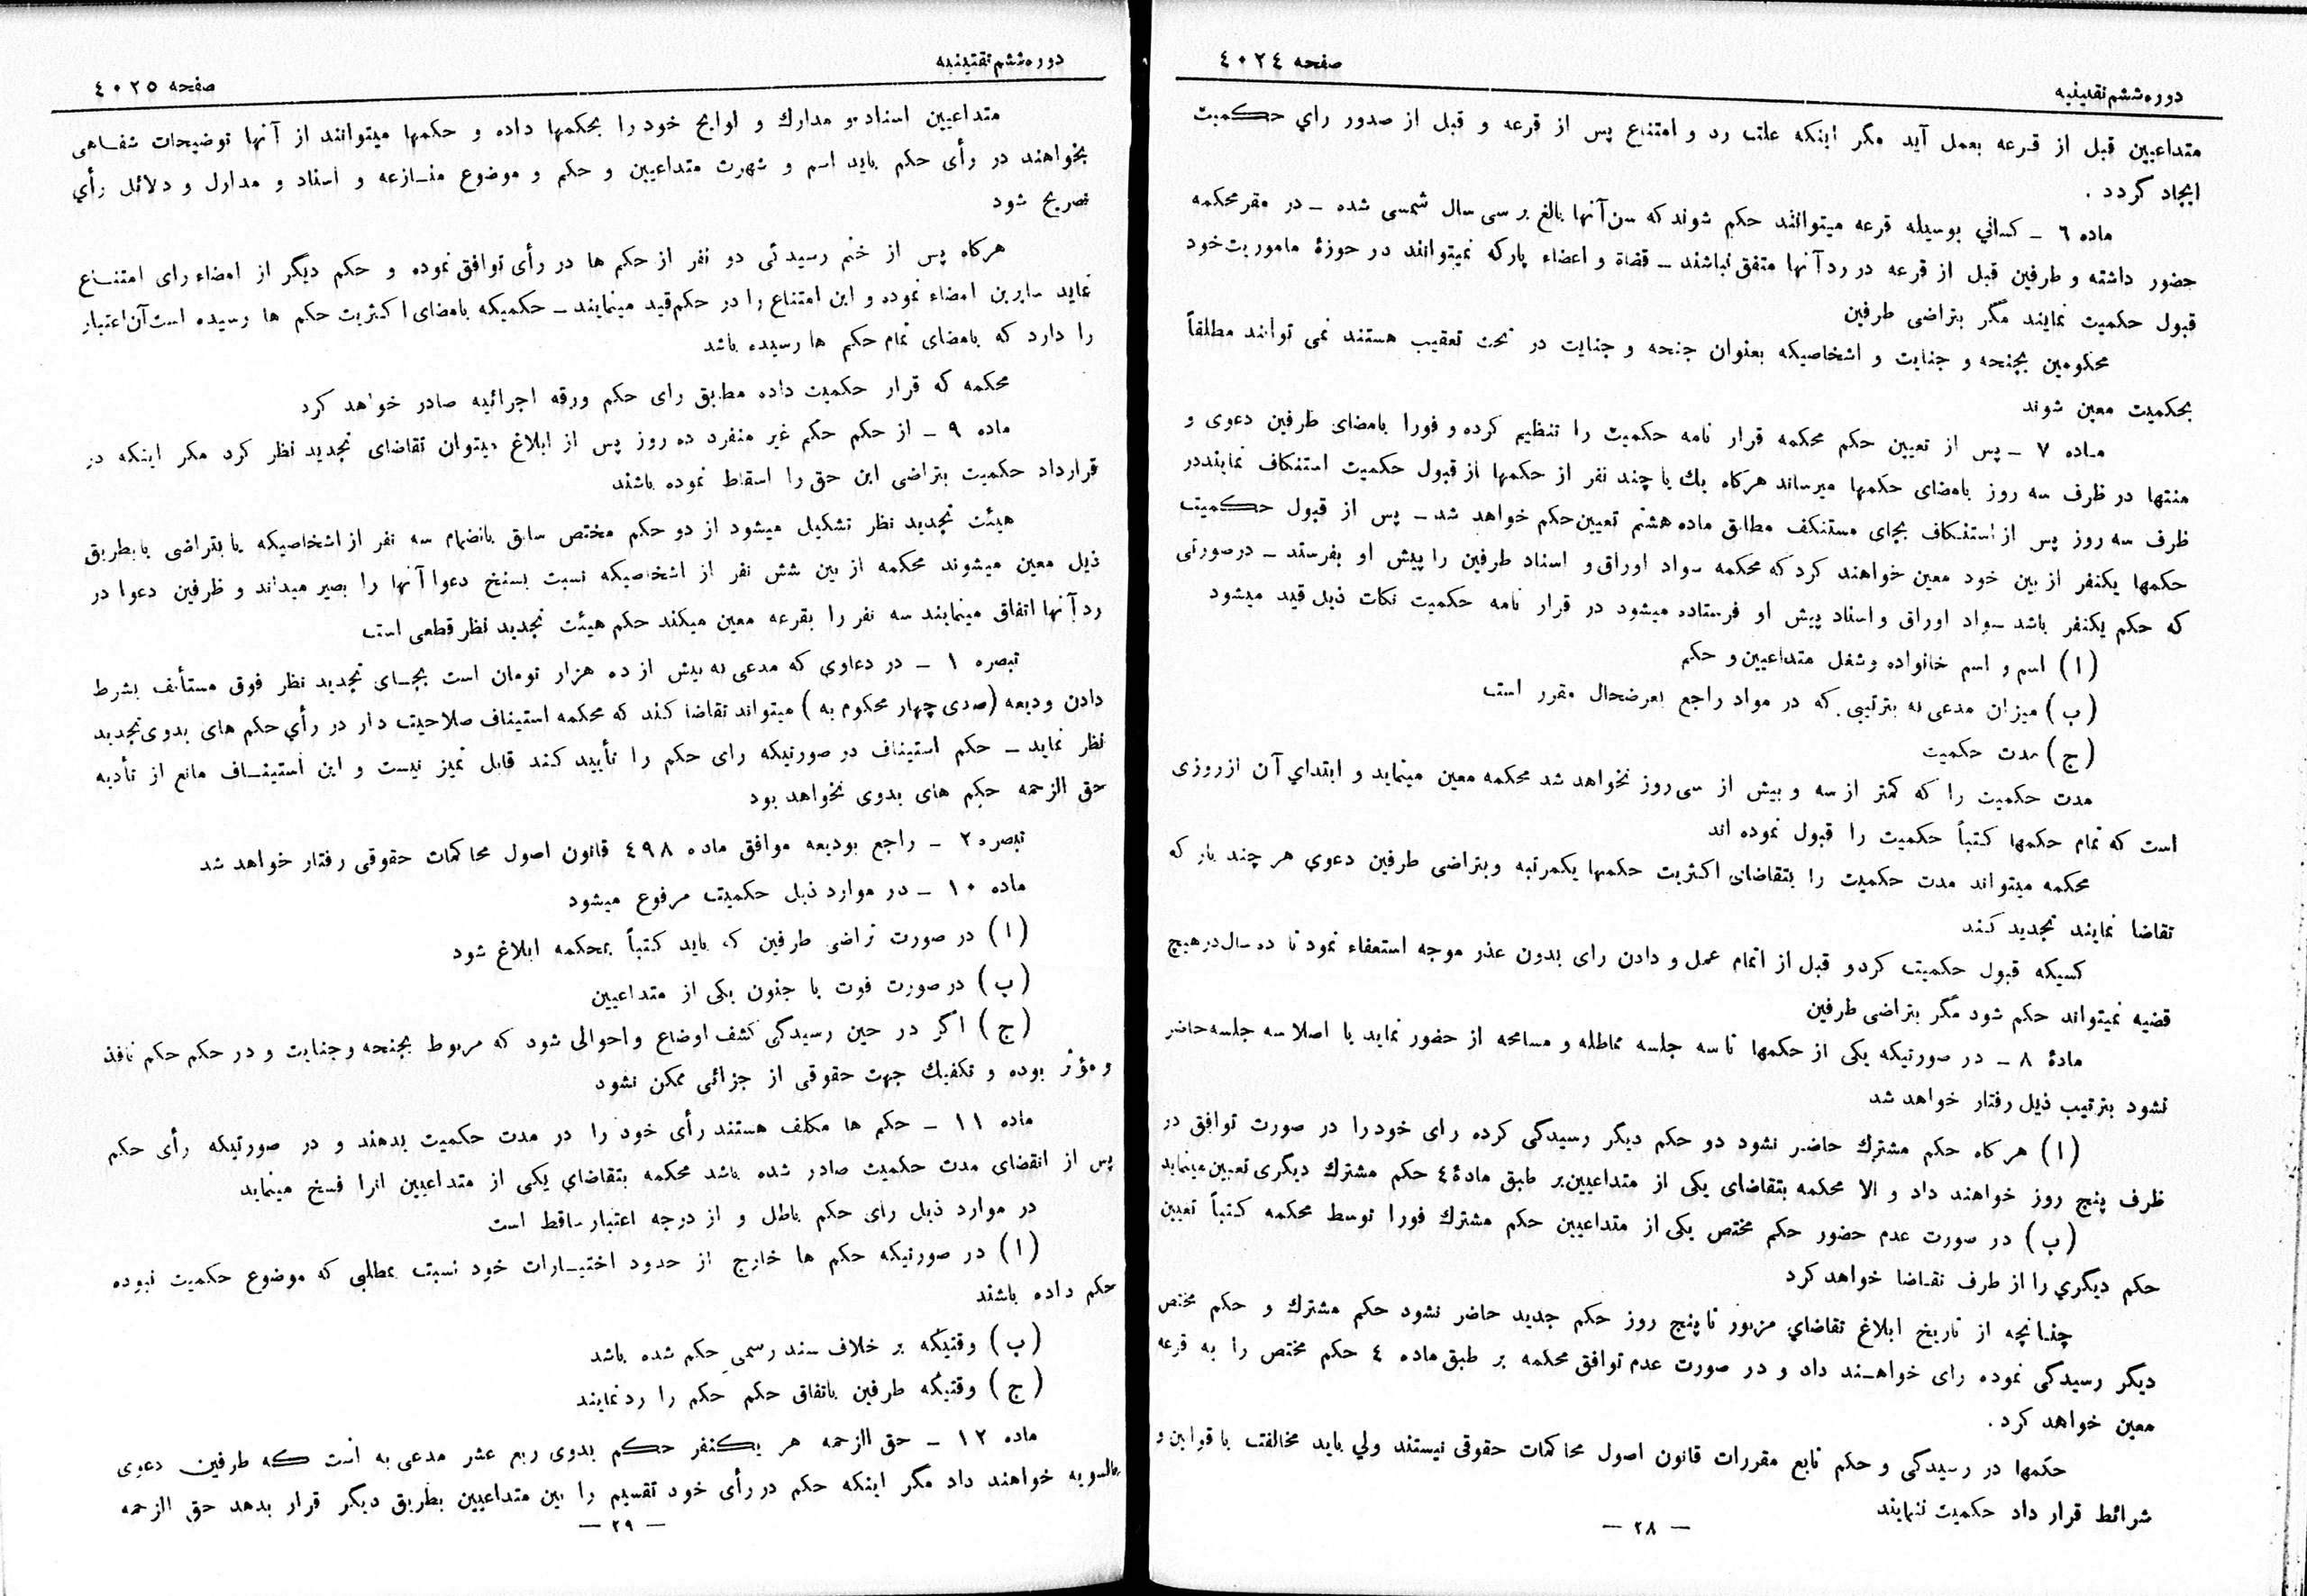 صفحه ٤٠٢٤
دوره ششم تقنینیه
متداعیین قبل از قرعه بعمل آید مگر اینکه علت رد و امتناع پس از قرعه و قبل از صدور رای حکمیت
ایجاد گردد .
ماده ٦ ـ کسانی بوسیله قرعه میتوانند حکم شوند که سن آنها بالغ بر سی سال شمسی شده ـ در مقر محکمه
حضور داشته و طرفین قبل از قرعه در رد آنها متفق نباشند ـ قضاة و اعضاء پارکه نمیتوانند در حوزهٔ ماموریت خود
قبول حکمیت نمایند مگر بتراضی طرفین
محکومین بجنحه و جنایت و اشخاصیکه بعنوان جنحه و جنایت در تحت تعقیب هستند نمی توانند مطلقاً
بحکمیت معین شوند
ماده ٧ ـ پس از تعیین حکم محکمه قرار نامه حکمیت را تنظیم کرده و فورا بامضای طرفین دعوی و
منتها در ظرف سه روز بامضای حکمها میرساند هرگاه یك یا چند نفر از حکمها از قبول حکمیت استنکاف نمایند در
ظرف سه روز پس از استنکاف بجای مستنکف مطابق ماده هشتم تعیین حکم خواهد شد ـ پس از قبول حکمیت
حکمها یکنفر از بین خود معین خواهند کرد که محکمه سواد اوراق و اسناد طرفین را پیش او بفرستد ـ درصورتی
که حکم یکنفر باشد سواد اوراق و اسناد پیش او فرستاده میشود در قرار نامه حکمیت نکات ذیل قید میشود
(ا) اسم و اسم خانواده و شغل متداعیین و حکم
(ب) میزان مدعی به بترتیبی که در مواد راجع بعرضحال مقرر است
(ج) مدت حکمیت
مدت حکمیت را که کمتر از سه و بیش از سی روز نخواهد شد محکمه معین مینماید و ابتدای آن از روزی
است که تمام حکمها کتباً حکمیت را قبول نموده اند
محکمه میتواند مدت حکمیت را بتقاضای اکثریت حکمها یکمرتبه و بتراضی طرفین دعوی هر چند بار که
تقاضا نمایند تجدید کند
کسیکه قبول حکمیت کرد و قبل از اتمام عمل و دادن رای بدون عذر موجه استعفاء نمود تا ده سال در هیچ
قضیه نمیتواند حکم شود مگر بتراضی طرفین
مادهٔ ٨ ـ در صورتیکه یکی از حکمها تا سه جلسه مماطله و مسامحه از حضور نماید یا اصلا سه جلسه حاضر
نشود بترتیب ذیل رفتار خواهد شد
(ا) هر گاه حکم مشترك حاضر نشود دو حکم دیگر رسیدگی کرده رای خود را در صورت توافق در
ظرف پنج روز خواهند داد و الا محکمه بتقاضای یکی از متداعیین بر طبق مادهٔ ٤ حکم مشترك دیگری تعیین مینماید
(ب) در صورت عدم حضور حکم مختص یکی از متداعیین حکم مشترك فورا توسط محکمه کتباً تعیین
حکم دیگری را از طرف تقاضا خواهد کرد
چنانچه از تاریخ ابلاغ تقاضای مزبور تا پنج روز حکم جدید حاضر نشود حکم مشترك و حکم مختص
دیگر رسیدگی نموده رای خواهند داد و در صورت عدم توافق محکمه بر طبق ماده ٤ حکم مختص را به قرعه
معین خواهد کرد .
حکمها در رسیدگی و حکم تابع مقررات قانون اصول محاکمات حقوقی نیستند ولی باید مخالفت با قوانین و
شرائط قرار داد حکمیت ننمایند
— ٢٨ —
دوره ششم تقنینیه
صفحه ٤٠٢٥
متداعیین اسناد و مدارك و لوایح خود را بحکمها داده و حکمها میتوانند از آنها توضیحات شفاهی
بخواهند در رأی حکم باید اسم و شهرت متداعیین و حکم و موضوع منازعه و اسناد و مدارل و دلائل رأی
تصریح شود
هرگاه پس از ختم رسیدگی دو نفر از حکم ها در رأی توافق نموده و حکم دیگر از امضاء رای امتناع
نماید سایرین امضاء نموده و این امتناع را در حکم قید مینمایند ـ حکمیکه بامضای اکثریت حکم ها رسیده است آن اعتبار
را دارد که بامضای تمام حکم ها رسیده باشد
محکمه که قرار حکمیت داده مطابق رای حکم ورقه اجرائیه صادر خواهد کرد
ماده ٩ ـ از حکم حکم غیر منفرد ده روز پس از ابلاغ میتوان تقاضای تجدید نظر کرد مگر اینکه در
قرارداد حکمیت بتراضی این حق را اسقاط نموده باشند
هیئت تجدید نظر تشکیل میشود از دو حکم مختص سابق بانضمام سه نفر از اشخاصیکه یا بتراضی یا بطریق
ذیل معین میشوند محکمه از بین شش نفر از اشخاصیکه نسبت بسنخ دعوا آنها را بصیر میداند و طرفین دعوا در
رد آنها اتفاق مینمایند سه نفر را بقرعه معین میکند حکم هیئت تجدید نظر قطعی است
تبصره ١ ـ در دعاوی که مدعی به بیش از ده هزار تومان است بجای تجدید نظر فوق مستأنف بشرط
دادن ودیعه (صدی چهار محکوم به) میتواند تقاضا کند که محکمه استیناف صلاحیت دار در رأی حکم های بدوی تجدید
نظر نماید ـ حکم استیناف در صورتیکه رای حکم را تأیید کند قابل تمیز نیست و این استیناف مانع از تأدیه
حق الزحمه حکم های بدوی نخواهد بود
تبصره ٢ ـ راجع بودیعه موافق ماده ٤٩٨ قانون اصول محاکمات حقوقی رفتار خواهد شد
ماده ١٠ ـ در موارد ذیل حکمیت مرفوع میشود
(ا) در صورت تراضی طرفین که باید کتباً بمحکمه ابلاغ شود
(ب) در صورت فوت یا جنون یکی از متداعیین
(ج) اگر در حین رسیدگی کشف اوضاع و احوالی شود که مربوط بجنحه و جنایت و در حکم حکم نافذ
و مؤثر بوده و تکفیك جهت حقوقی از جزائی ممکن نشود
ماده ١١ ـ حکم ها مکلف هستند رأی خود را در مدت حکمیت بدهند و در صورتیکه رأی حکم
پس از انقضای مدت حکمیت صادر شده باشد محکمه بتقاضای یکی از متداعیین انرا فسخ مینماید
در موارد ذیل رای حکم باطل و از درجه اعتبار ساقط است
(ا) در صورتیکه حکم ها خارج از حدود اختیارات خود نسبت بمطلبی که موضوع حکمیت نبوده
حکم داده باشند
(ب) وقتیکه بر خلاف سند رسمی حکم شده باشد
(ج) وقتیکه طرفین باتفاق حکم حکم را رد نمایند
ماده ١٢ ـ حق الزحمه هر یکنفر حکم بدوی ربع عشر مدعی به است که طرفین دعوی
بالسویه خواهند داد مگر اینکه حکم در رأی خود تقسیم را بین متداعیین بطریق دیگر قرار بدهد حق الزحمه
— ٢٩ —